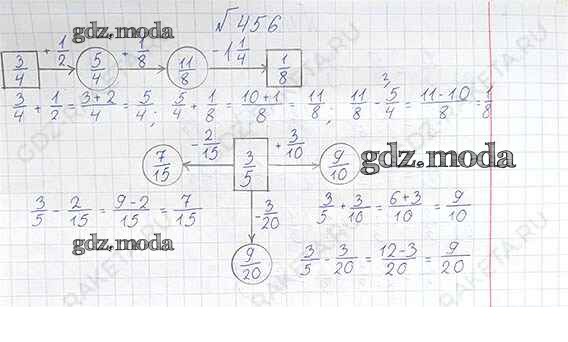 №456
gdz.moda
3/4 +1/2 5/4 +1/8 11/8 -1 1/4 1/8
3/4 + 1/2 = 3+2/4 = 5/4; 5/4 + 1/8 = 10+1/8 = 11/8; 11/8 - 5/4 = 11-10/8 = 1/8
7/15 -2/15 3/5 +3/10 9/10
gdz.moda
3/5 - 2/15 = 9-2/15 = 7/15 -3/20 3/5 + 3/10 = 6+3/10 = 9/10
gdz.moda
9/20 3/5 - 3/20 = 12-3/20 = 9/20
GDZ-RAKETA.RU